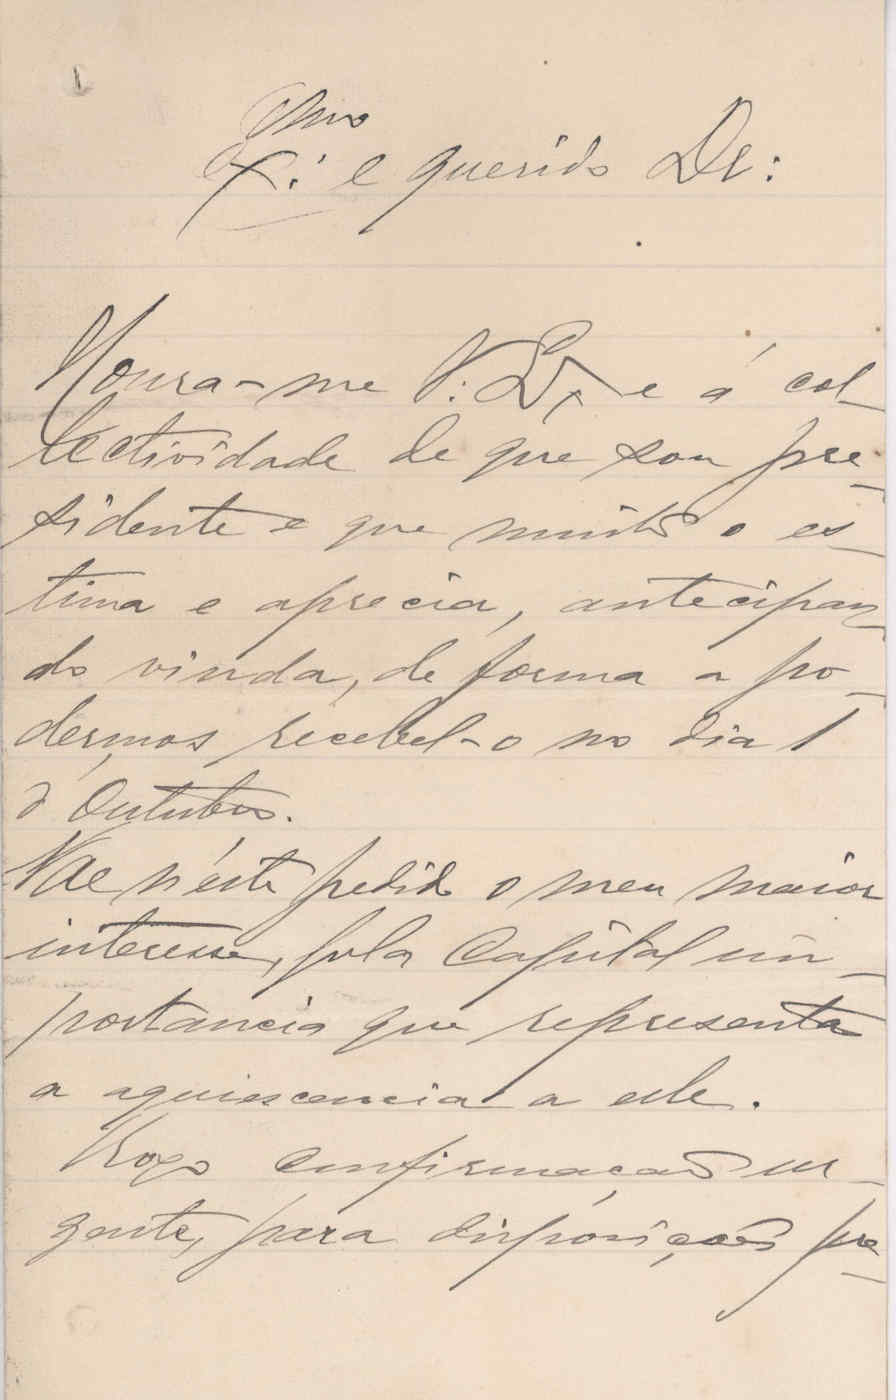 Exmo e querido Dr:
Honra-me V: Ex e á col-
lectividade de que sou pre-
sidente e que muito o es-
tima e aprecia, antecipan-
do vinda, de forma a po-
dermos recebel-o no dia 1
d'Outubro.
Vae n'éste pedido o meu maior
interesse, pela Capital im-
portancia que representa
a aquiescencia a elle.
Rogo confirmação ur-
gente, para disposições pre-